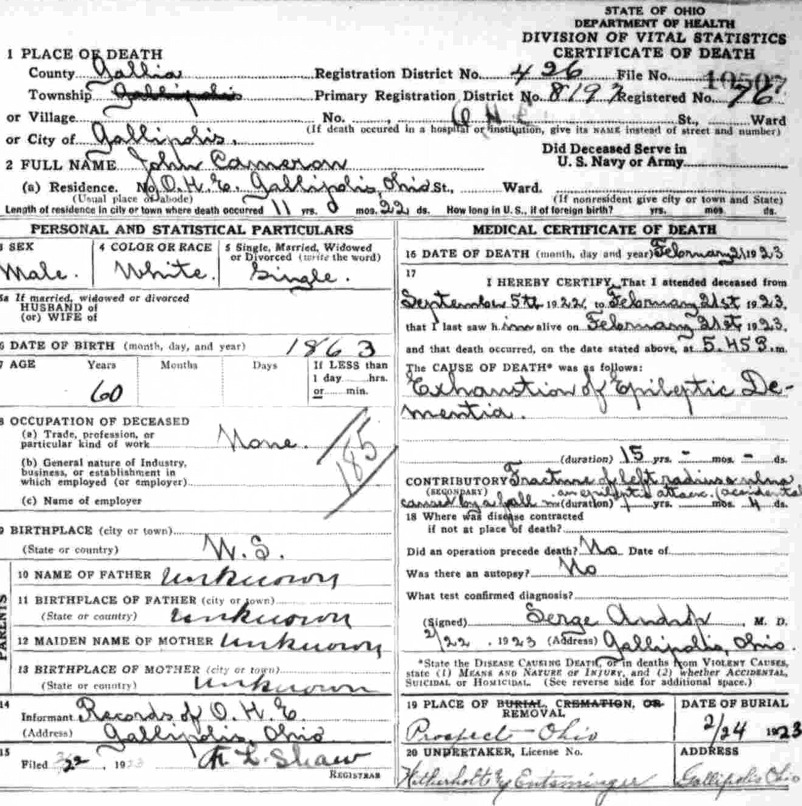 STATE OF OHIO
DEPARTMENT OF HEALTH
DIVISION OF VITAL STATISTICS
CERTIFICATE OF DEATH
1 PLACE OF DEATH
County Gallia Registration District No. 426 File No. 10507
Township Gallipolis Primary Registration District No. 8197 Registered No. 76
or Village No. O H E St., Ward
(If death occured in a hospital or institution, give its NAME instead of street and number)
or City of Gallipolis.
Did Deceased Serve in
U. S. Navy or Army
2 FULL NAME John Cameron
(a) Residence. No. O. H. E. Gallipolis, Ohio St., Ward.
(Usual place of abode) (If nonresident give city or town and State)
Length of residence in city or town where death occurred 11 yrs. 0 mos. 22 ds. How long in U. S., if of foreign birth? yrs. mos. ds.
PERSONAL AND STATISTICAL PARTICULARS
3 SEX 4 COLOR OR RACE 5 Single, Married, Widowed
or Divorced (write the word)
Male. White. Single.
5a If married, widowed or divorced
HUSBAND of
(or) WIFE of
6 DATE OF BIRTH (month, day, and year) 1863
7 AGE Years Months Days If LESS than
1 day hrs.
or min.
60
8 OCCUPATION OF DECEASED
(a) Trade, profession, or
particular kind of work None.
185
(b) General nature of Industry,
business, or establishment in
which employed (or employer)
(c) Name of employer
9 BIRTHPLACE (city or town)
(State or country)
PARENTS
10 NAME OF FATHER Unknown
11 BIRTHPLACE OF FATHER (city or town)
(State or country) Unknown
12 MAIDEN NAME OF MOTHER Unknown
13 BIRTHPLACE OF MOTHER (city or town)
(State or country) Unknown
14
Informant Records of O. H. E.
(Address) Gallipolis, Ohio
15
Filed 2/22, 1923 Shaw
REGISTRAR
MEDICAL CERTIFICATE OF DEATH
16 DATE OF DEATH (month, day and year) February 21 1923
17
I HEREBY CERTIFY, That I attended deceased from
September 5th 1922, to February 21st 1923,
that I last saw him alive on February 21st 1923,
and that death occurred, on the date stated above, at 5.45 m.
The CAUSE OF DEATH* was as follows:
Exhaustion of Epileptic De-
mentia.
(duration) 15 yrs. - mos. - ds.
CONTRIBUTORY Fracture of left radius & ulna
(SECONDARY) an epileptic attack. (accidental
caused by a fall in (duration) yrs. mos. 4 ds.
18 Where was disease contracted
if not at place of death?
Did an operation precede death? No Date of
Was there an autopsy? No
What test confirmed diagnosis?
(Signed) Serge Androp, M. D.
2/22, 1923 (Address) Gallipolis, Ohio.
*State the DISEASE CAUSING DEATH, or in deaths from VIOLENT CAUSES,
state (1) MEANS AND NATURE OF INJURY, and (2) whether ACCIDENTAL,
SUICIDAL or HOMICIDAL. (See reverse side for additional space.)
19 PLACE OF BURIAL, CREMATION, OR DATE OF BURIAL
REMOVAL
Prospect - Ohio 2/24 1923
20 UNDERTAKER, License No. ADDRESS
Entsminger Gallipolis Ohio